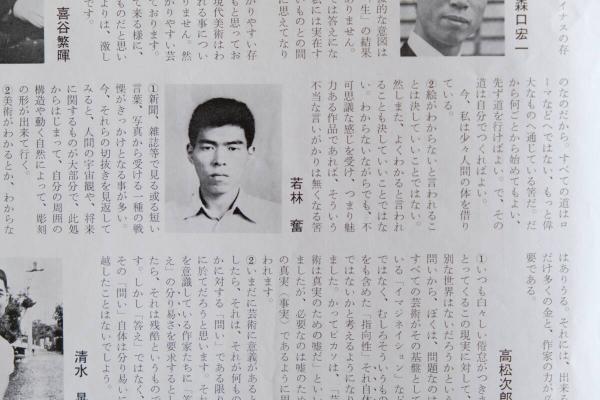 イナスの存
森口宏一
的な意図は
生」の結果
ありません。
には答えにな
私には実存す
いものとの間
に思えてなり
かりやすい存
もと思ってお
現代芸術はわ
れる事につい
りません。然
かりやすい芸
ております。
て来る様に、
ものだと思い
よりは、激し
です。
喜谷繁暉
のなのだから。すべての道はロ
ーマなどへではない、もっと偉
大なものへ通じている筈だ。だ
から何ごとから始めてもよい、
先ず道を行けばよい。で、その
道は自分でつくればよい。
今、私は少々人間の体を借り
ている。
②絵がわからないと言われるこ
とは決していいことではない。
然しまた、よくわかると言われ
ることも決していいことではな
い。わからないながらでも、不
可思議な感じを受け、つまり魅
力ある作品であれば、そういう
不当な言いがかりは無くなる筈
若林 奮
①新聞、雑誌等で見る或る短い
言葉、写真から受ける一種の戦
慄がきっかけとなる事が多い。
今、それらの切抜きを見返して
みると、人間の宇宙観や、将来
に関するものが大部分で、此処
からはじまって、自分の周囲の
構造や動く自然によって、彫刻
の形が出来て行く。
②美術がわかるとか、わからな
はありうる。それには、出来る
だけ多くの金と、作家の力が必
要である。
高松次郎
①いつも白々しい倦怠がつきま
とってくるこの現実に対して、
別な世界はないだろうかという
問いから、ぼくは、問題なのは
すべての芸術がその基盤として
いる「イマジネイション」など
ではなく、むしろそういうもの
をも含めた「指向性」それ自体
ではないかと考えるようになり
ました。かってピカソは、「芸
術は真実のための嘘だ」といい
ましたが、必要なのは嘘のため
の真実（事実）であるように思
われます。
②いまだに芸術に意義があると
したら、それは、それが何もの
かに対する「問い」である限り
に於てだろうと思います。それ
を意識している作家たちに「答
え」の分り易さを要求するとし
たら、それは残酷というもので
す。しかし「答え」ではなく、
その「問い」自体は分り易いに
越したことはないでしょう。
清水 晃